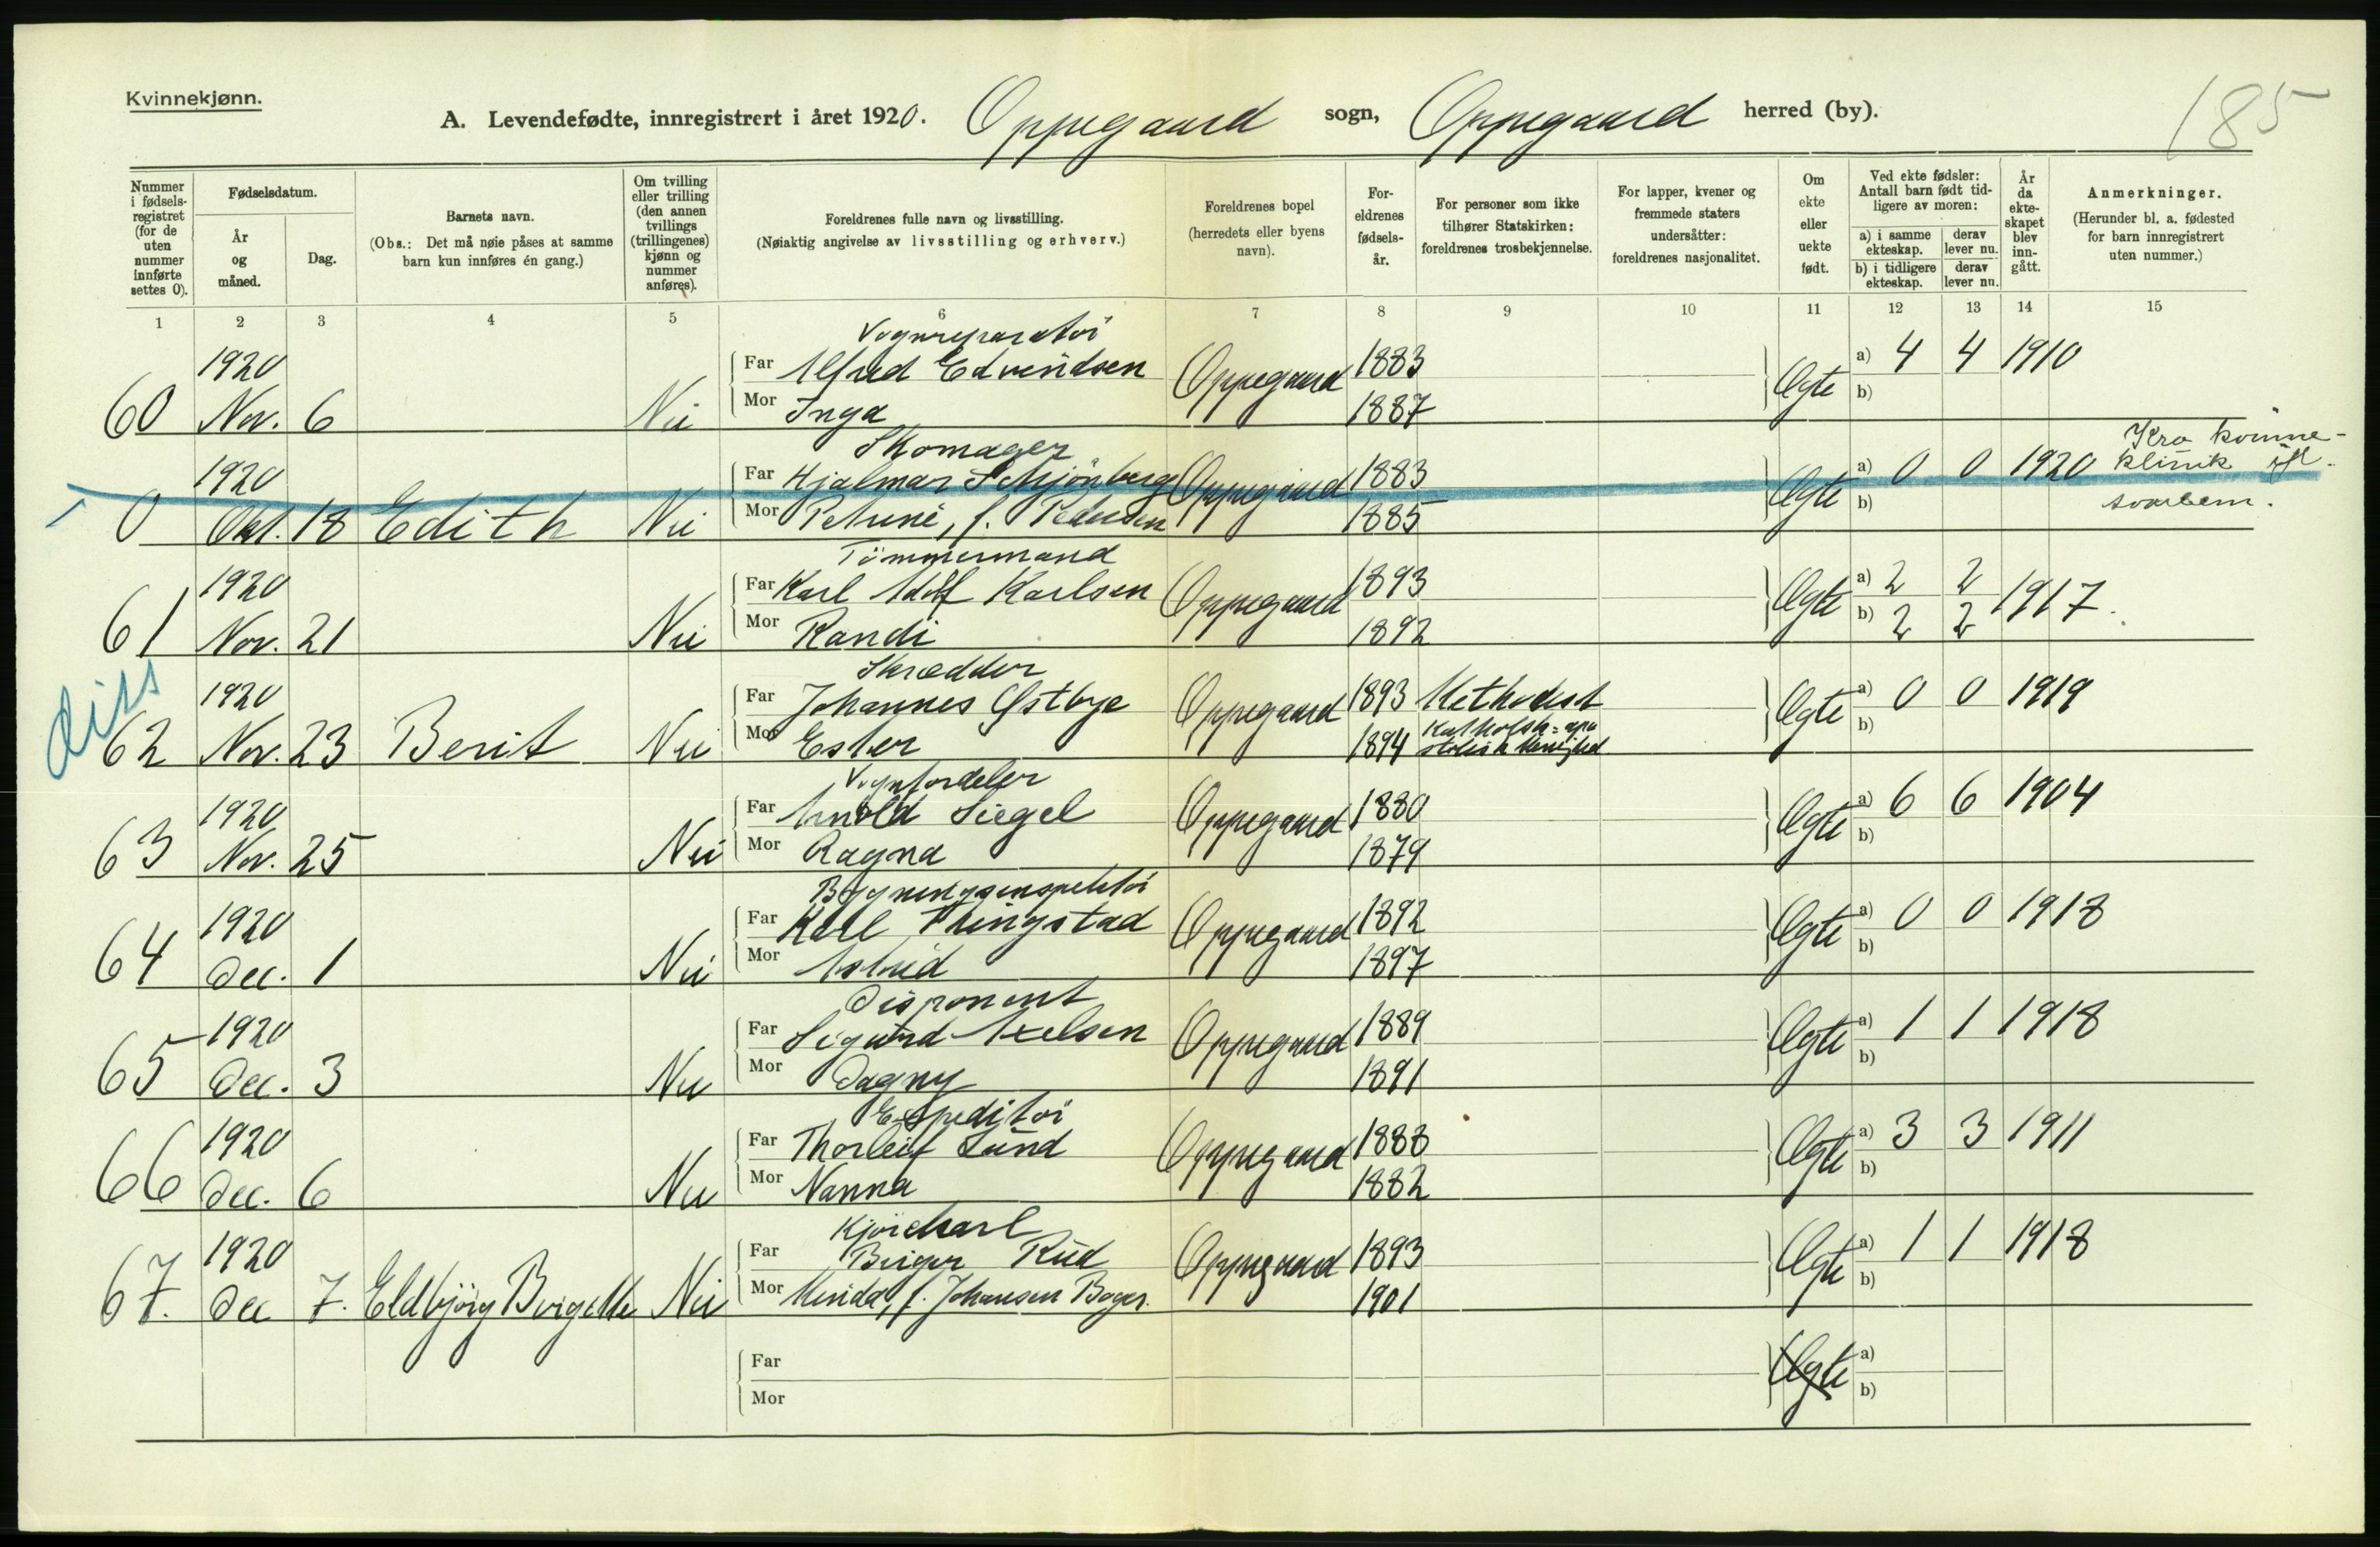 Kvinnekjønn.
A. Levendefødte, innregistrert i året 1920. Oppegaard sogn, Oppegaard herred (by).
185
Nummer i fødselsregistret (for de uten nummer innførte settes 0).
Fødselsdatum.
År og måned.
Dag.
Barnets navn.
(Obs.: Det må nøie påses at samme barn kun innføres én gang.)
Om tvilling eller trilling (den annen tvillings (trillingenes) kjønn og nummer anføres).
Foreldrenes fulle navn og livsstilling.
(Nøiaktig angivelse av livsstilling og erhverv.)
Foreldrenes bopel (herredets eller byens navn).
Foreldrenes fødselsår.
For personer som ikke tilhører Statskirken: foreldrenes trosbekjennelse.
For lapper, kvener og fremmede staters undersåtter: foreldrenes nasjonalitet.
Om ekte eller uekte født.
Ved ekte fødsler: Antall barn født tidligere av moren:
a) i samme ekteskap. derav lever nu.
b) i tidligere ekteskap. derav lever nu.
År da ekteskapet blev inngått.
Anmerkninger.
(Herunder bl. a. fødested for barn innregistrert uten nummer.)
1 2 3 4 5 6 7 8 9 10 11 12 13 14 15
Vognreparatør
1920 Far Alfred Edvindsen Oppegaard 1883 Ægte a) 4 4 1910
60 Nov. 6 Nei Mor Inga 1887 b)
Skomager
1920 Far Hjalmar Schjönberg Oppegaard 1883 Ægte a) 0 0 1920 Kra kvinneklinik
0 Okt. 18 Edith Nei Mor Petrine, f. Pedersen 1885 b)
Tömmermand
1920 Far Karl Adolf Karlsen Oppegaard 1893 Ægte a) 2 2 1917.
61 Nov. 21 Nei Mor Randi 1892 b) 2 2
Skrædder
diss
1920 Far Johannes Østbye Oppegaard 1893 Methodist Ægte a) 0 0 1919
62 Nov. 23 Berit Nei Mor Ester 1894 Katholsk=apostolisk Menighed b)
Vognfordeler
1920 Far Arnold Siegel Oppegaard 1880 Ægte a) 6 6 1904
63 Nov. 25 Nei Mor Ragna 1879 b)
Bygningsinspektör
1920 Far Karl Thingstad Oppegaard 1892 Ægte a) 0 0 1918
64 Dec. 1 Nei Mor Astrid 1897 b)
Disponent
1920 Far Sigurd Axelsen Oppegaard 1889 Ægte a) 1 1 1918
65 Dec. 3 Nei Mor Dagny 1891 b)
Expeditör
1920 Far Thorleif Lund Oppegaard 1888 Ægte a) 3 3 1911
66 Dec. 6 Nei Mor Nanna 1882 b)
Kjörekarl
1920 Far Birger Rud Oppegaard 1893 Ægte a) 1 1 1918
67. Dec 7. Eldbjörg Birgitte Nei Mor Minda, f. Johansen 1901 b)
Far Ægte a)
Mor b)